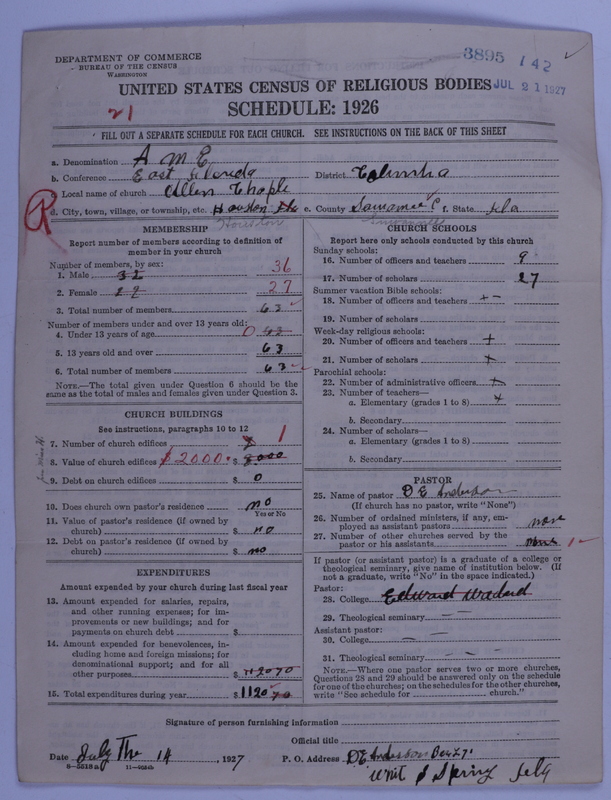 DEPARTMENT OF COMMERCE
BUREAU OF THE CENSUS
WASHINGTON
3895 142
UNITED STATES CENSUS OF RELIGIOUS BODIES
JUL 21 1927
SCHEDULE: 1926
21
FILL OUT A SEPARATE SCHEDULE FOR EACH CHURCH. SEE INSTRUCTIONS ON THE BACK OF THIS SHEET
a. Denomination A M E
b. Conference East Florida District
c. Local name of church Allen Chaple
R
d. City, town, village, or township, etc. Houston e. County f. State Fla
Houston
MEMBERSHIP
Report number of members according to definition of member in your church
Number of members, by sex:
1. Male 32 36
2. Female 27 27
3. Total number of members 63
Number of members under and over 13 years old:
4. Under 13 years of age 0
5. 13 years old and over 63
6. Total number of members 63
NOTE.—The total given under Question 6 should be the
same as the total of males and females given under Question 3.
CHURCH BUILDINGS
See instructions, paragraphs 10 to 12
7. Number of church edifices 1
8. Value of church edifices $2000. $
9. Debt on church edifices $ 0
10. Does church own pastor's residence no
Yes or No
11. Value of pastor's residence (if owned by
church) $ no
12. Debt on pastor's residence (if owned by
church) $ no
EXPENDITURES
Amount expended by your church during last fiscal year
13. Amount expended for salaries, repairs,
and other running expenses; for im-
provements or new buildings; and for
payments on church debt $
14. Amount expended for benevolences, in-
cluding home and foreign missions; for
denominational support; and for all
other purposes $ 112070
15. Total expenditures during year $ 1120 70
CHURCH SCHOOLS
Report here only schools conducted by this church
Sunday schools:
16. Number of officers and teachers 9
17. Number of scholars 27
Summer vacation Bible schools:
18. Number of officers and teachers
19. Number of scholars
Week-day religious schools:
20. Number of officers and teachers
21. Number of scholars
Parochial schools:
22. Number of administrative officers
23. Number of teachers—
a. Elementary (grades 1 to 8)
b. Secondary
24. Number of scholars—
a. Elementary (grades 1 to 8)
b. Secondary
PASTOR
25. Name of pastor D E Anderson
(If church has no pastor, write "None")
26. Number of ordained ministers, if any, em-
ployed as assistant pastors none
27. Number of other churches served by the
pastor or his assistants 1
If pastor (or assistant pastor) is a graduate of a college or
theological seminary, give name of institution below. (If
not a graduate, write "No" in the space indicated.)
Pastor:
28. College Edward
29. Theological seminary
Assistant pastor:
30. College
31. Theological seminary
NOTE.—Where one pastor serves two or more churches,
Questions 28 and 29 should be answered only on the schedule
for one of the churches; on the schedules for the other churches,
write "See schedule for church."
Signature of person furnishing information
Official title
Date July The 14, 1927 P. O. Address D E Anderson Box 71
8—5518 a
Spring Fla